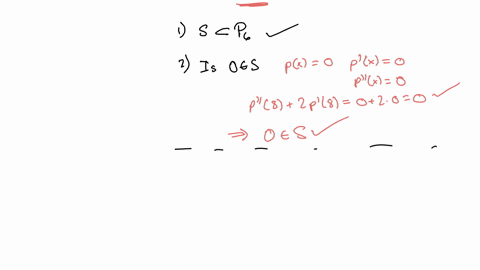 1) S ⊂ P₆ ✓
2) Is 0 ∈ S p(x) = 0 p'(x) = 0
p''(x) = 0
p''(8) + 2p'(8) = 0 + 2·0 = 0 ✓
⇒ 0 ∈ S ✓